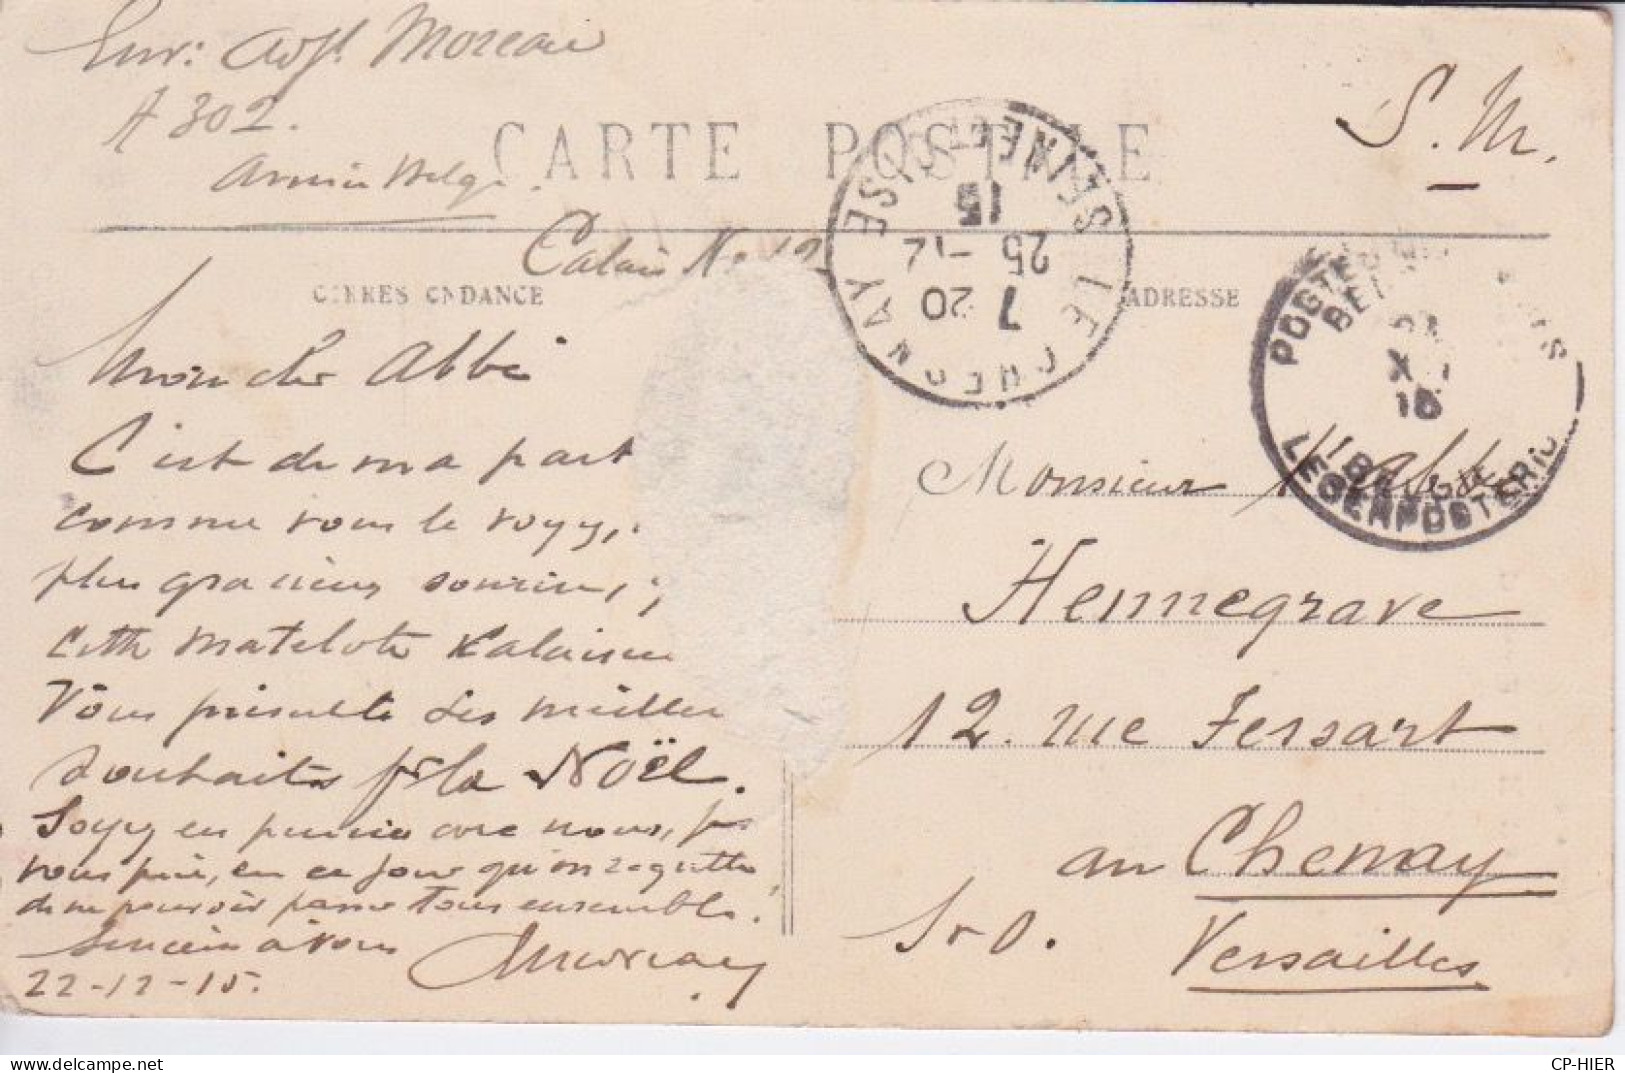 Env: Adjt Moreau
A 302.
Armée belge.
S. M.
CARTE POSTALE
Calais
CORRESPONDANCE
ADRESSE
SEINE ET OISE
15
25 -12
7 20
LE CHESNAY
POSTES MILITAIRES
BELGIQUE
XII
15
BELGIE
LEGERPOSTERIJ
Mon cher Abbé
C'est de ma part
comme vous le voyez,
plus gracieux sourire,
cette matelote Calaisienne
Vous présente ses meilleurs
souhaits pr la Noël.
Soyez en pensée avec nous, je
vous prie, en ce jour qu'on regrette
de ne pouvoir passer tous ensemble.
Sincèrement à vous
Moreau
22-12-15.
Monsieur l'Abbé
Hennegrave
12. rue Fessart
au Chenay
S et O.
Versailles
CP-HIER